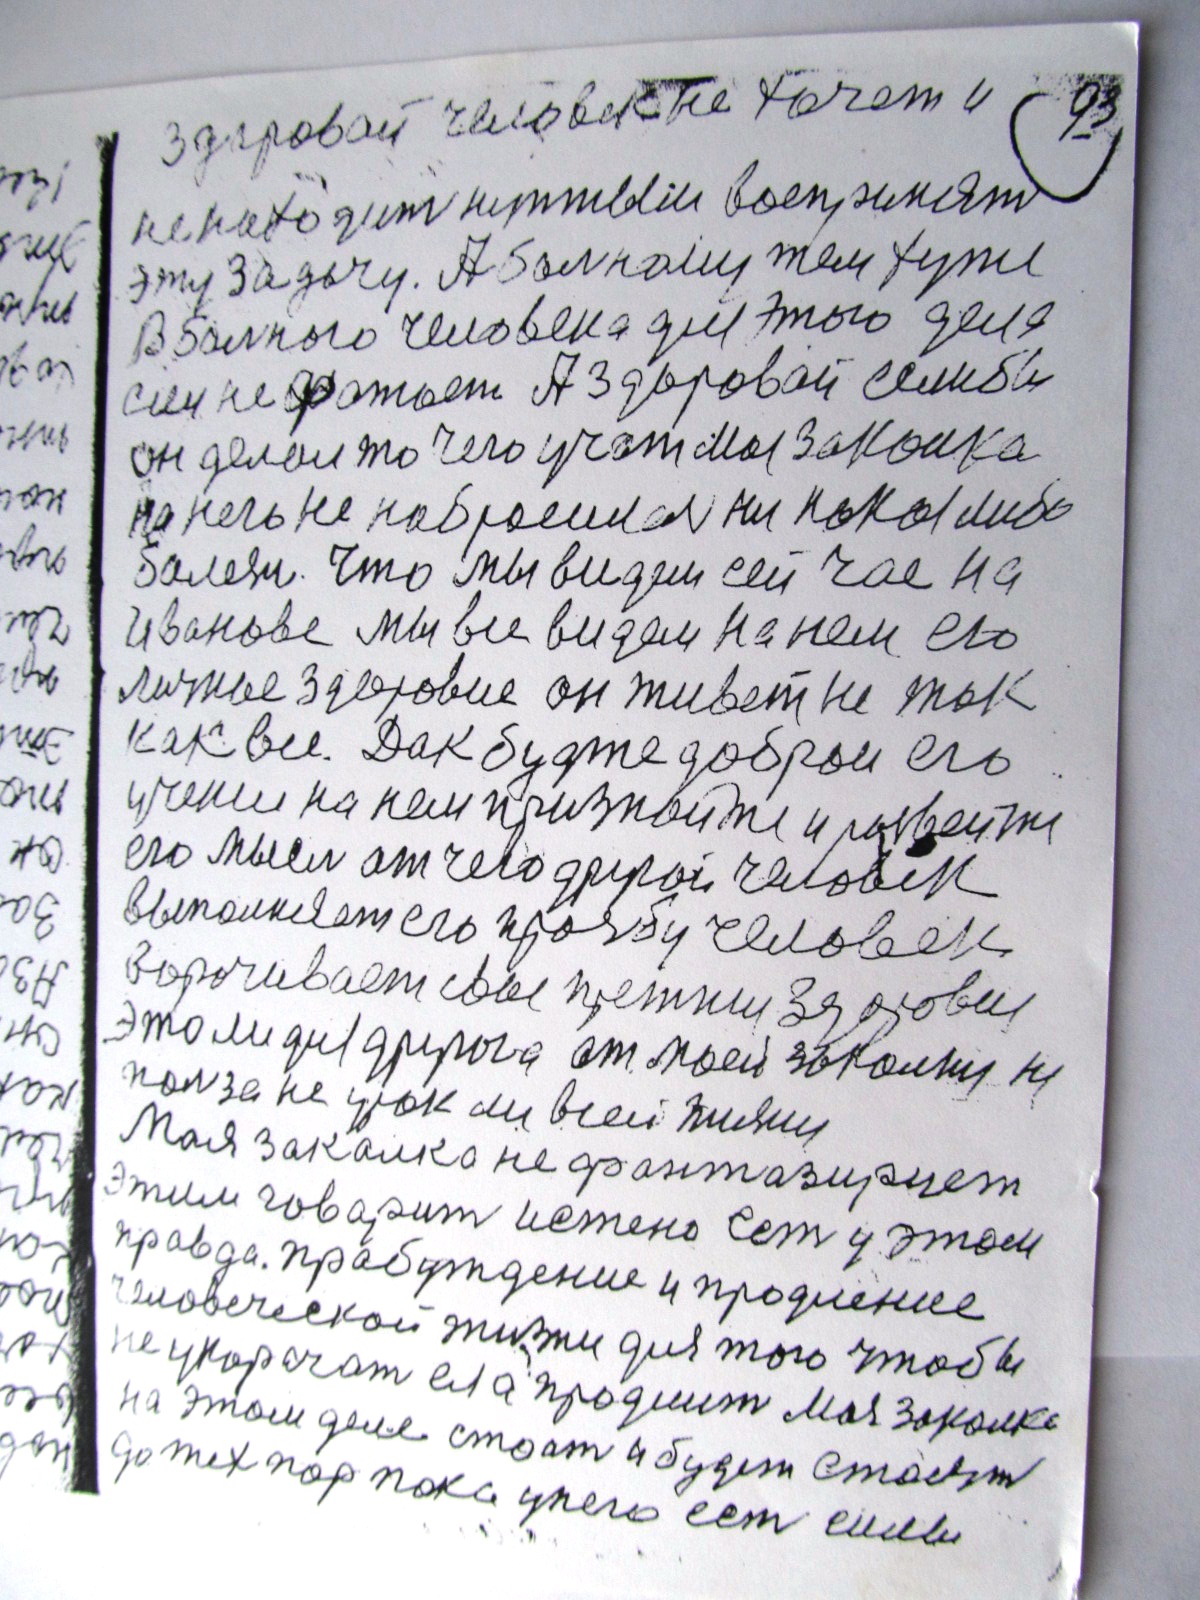 93
Здыровай человек не хочет и
не находит нуттыём воспринят
эту задачу. А болному тем хуже
В болного человека для этого дела
сил не фатает А здыровай если бы
он делал то чего учат моя закалка
на него не набросилас ни какая либо
болезн. Что мы видим сей час на
Иванове мы все видем на нем его
личные здоровие он живет не так
как все. Дак будте добры его
учение на нем признайте и розвейте
его мысл от чего другой человек
выполняет его прозбу человек
ворочивает свае прежние здоровие
Это ли для другога от моей закалки ни
полза не урок ли всей жизни
Моя закалка не фантазирует
этим говарит истено Ест у этом
правда. прабуждение и продление
человеческой жизни для того чтобы
не укорачат ея а продлит Моя закалка
на этом деле стоит и будет стоят
до тех пор пока у него ест силы